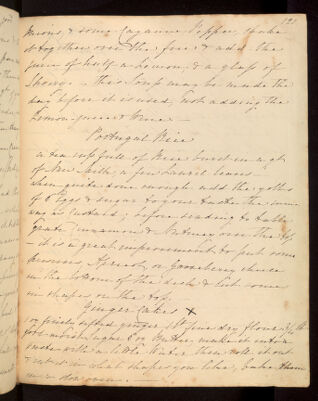 121
onions, & some Cayanne Pepper, shake
it together over the fire & add the
juice of half a Lemon, & a glass of
Sherry – this Soup may be made the
day before it is used, not adding the
Lemon juice & Wine –
Portugal Rice
a tea cup full of Rice burst in a qt
of New Milk, a few Laurel leaves –
when quite done enough add the yolks
of 6 Eggs & sugar to your taste the same
way as Custard; before sending to table
grate Cinnamon & Nutmeg over the top
– it is a great improvement to put some
preserves Apricot, or Gooseberry cheese
in the bottom of the dish & cut some
in shapes on the top.
Ginger Cakes X
1 oz finely sifted ginger, 1 lb fine dry flour, 3/4 lb
moist sugar 6 oz Butter, make it into a
paste with a little Water, then roll it out
& cut it in what shapes you like, bake them
in a slow oven. –